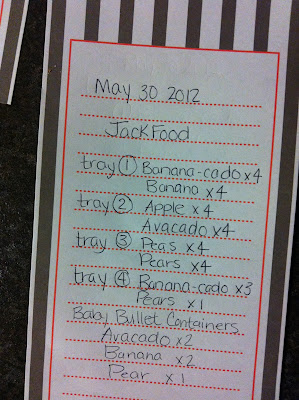 May 30 2012
JackFood
tray ① Banana-cado x4
Banana x4
tray ② Apple x4
Avacado x4
tray ③ Peas x4
Pears x4
tray ④ Banana-cado x3
Pears x1
Baby Bullet Containers
Avacado x2
Banana x2
Pear x1